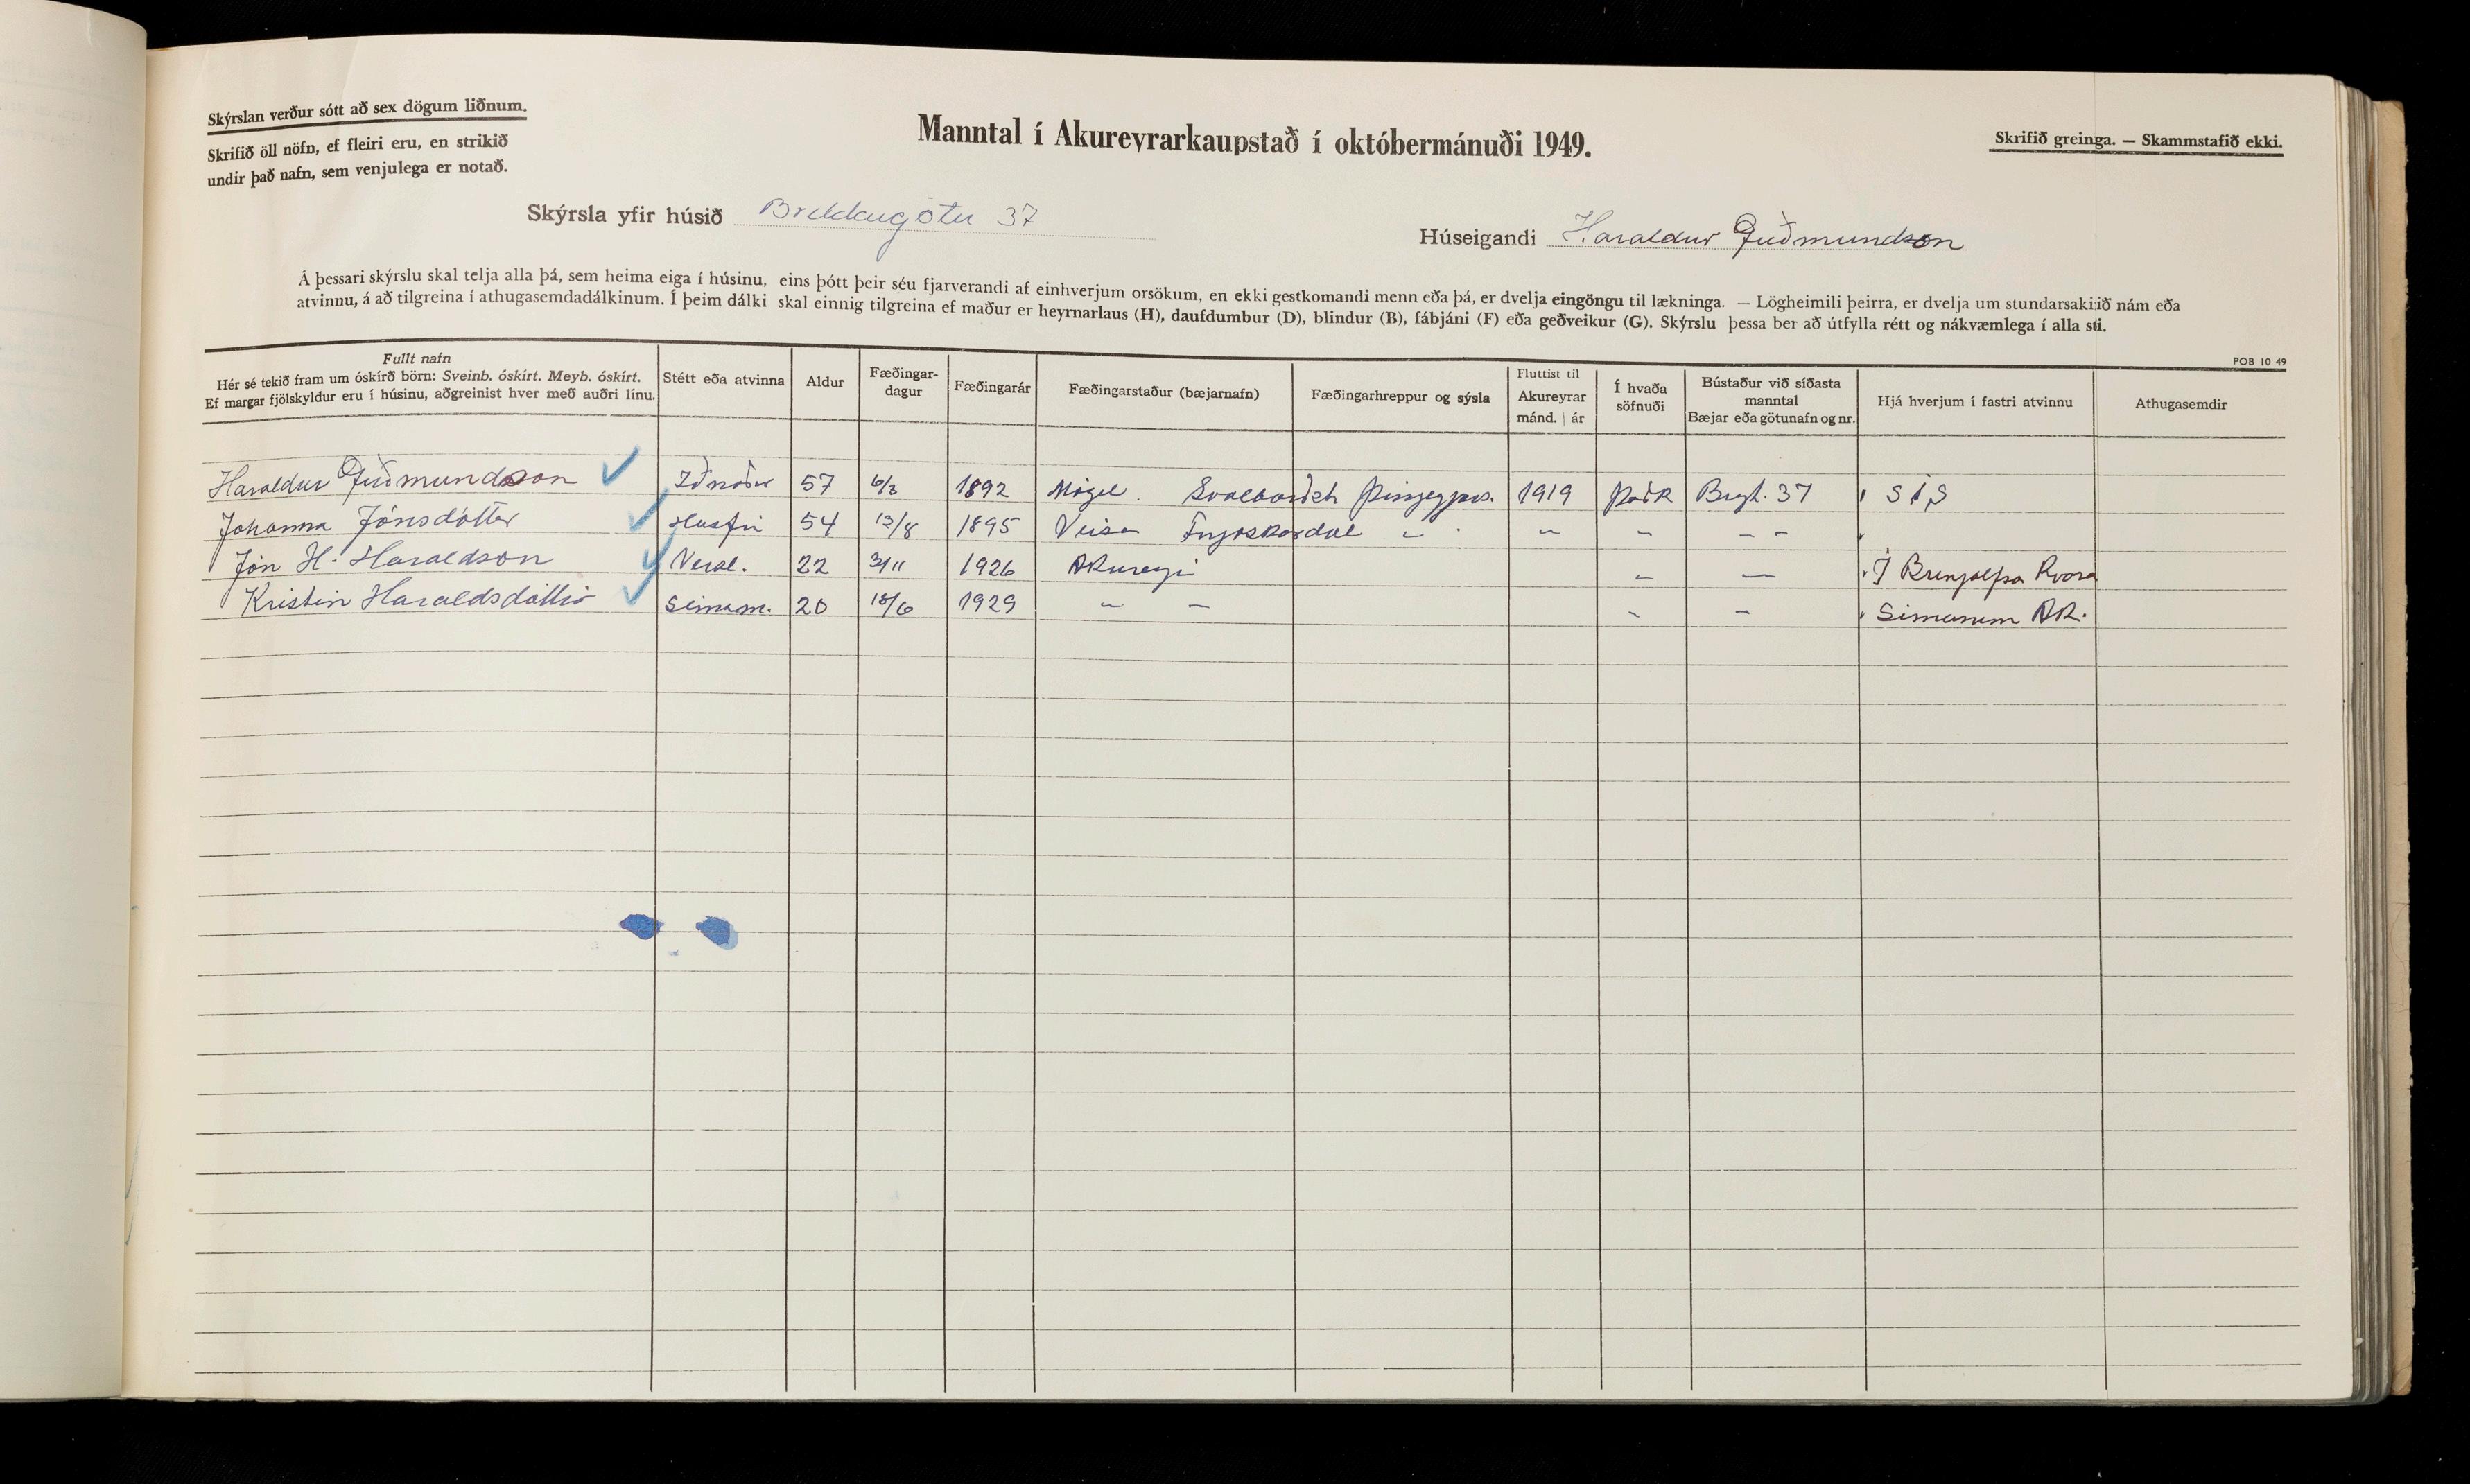 Skýrslan verður sótt að sex dögum liðnum.
Skrifið öll nöfn, ef fleiri eru, en strikið
undir það nafn, sem venjulega er notað.
Manntal í Akureyrarkaupstað í októbermánuði 1949.
Skrifið greinga. — Skammstafið ekki.
Skýrsla yfir húsið Brekkugötu 37
Húseigandi Haraldur Guðmundson
Á þessari skýrslu skal telja alla þá, sem heima eiga í húsinu, eins þótt þeir séu fjarverandi af einhverjum orsökum, en ekki gestkomandi menn eða þá, er dvelja eingöngu til lækninga. — Lögheimili þeirra, er dvelja um stundarsakir við nám eða
atvinnu, á að tilgreina í athugasemdadálkinum. Í þeim dálki skal einnig tilgreina ef maður er heyrnarlaus (H), daufdumbur (D), blindur (B), fábjáni (F) eða geðveikur (G). Skýrslu þessa ber að útfylla rétt og nákvæmlega í alla sti.
POB 10 49
Fullt nafn
Hér sé tekið fram um óskírð börn: Sveinb. óskírt. Meyb. óskírt.
Ef margar fjölskyldur eru í húsinu, aðgreinist hver með auðri línu.
Stétt eða atvinna
Aldur
Fæðingar-
dagur
Fæðingarár
Fæðingarstaður (bæjarnafn)
Fæðingarhreppur og sýsla
Fluttist til
Akureyrar
mánd. | ár
Í hvaða
söfnuði
Bústaður við síðasta
manntal
Bæjar eða götunafn og nr.
Hjá hverjum í fastri atvinnu
Athugasemdir
Haraldur Guðmundsson 57 1892 1919 37 SÍS
Johanna Jónsdótter Husfrú 54 12/8 1895 Veisa " " " "
Jón H. Haraldson Versl. 22 3/11 1926 Akureyri " "
Kristin Haraldsdóttir Simam. 20 18/6 1929 " " " " Simanum AK.